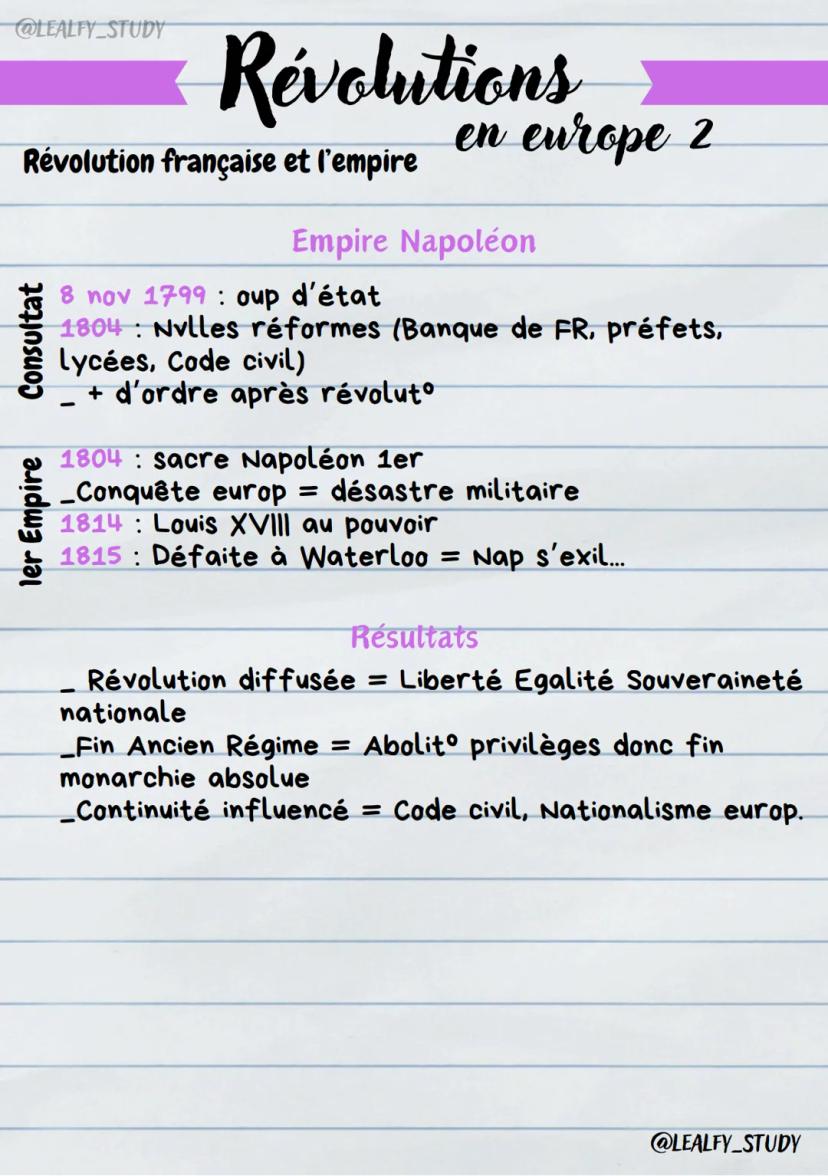 @LEALFY_STUDY
Révolutions
en europe 2
Révolution française et l'empire
Empire Napoléon
Consultat
8 nov 1799 : oup d'état
1804 : Nvlles réformes (Banque de FR, préfets,
lycées, Code civil)
_ + d'ordre après révolut°
1er Empire
1804 : sacre Napoléon 1er
_Conquête europ = désastre militaire
1814 : Louis XVIII au pouvoir
1815 : Défaite à Waterloo = Nap s'exil...
Résultats
_ Révolution diffusée = Liberté Egalité Souveraineté
nationale
_Fin Ancien Régime = Abolit° privilèges donc fin
monarchie absolue
_Continuité influencé = Code civil, Nationalisme europ.
@LEALFY_STUDY